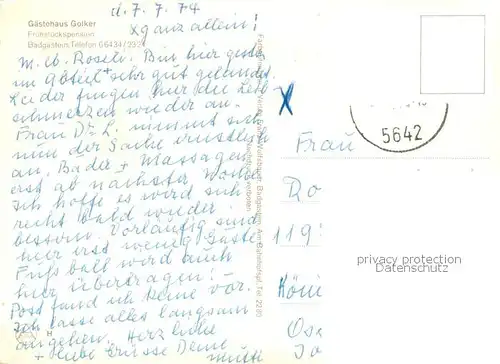 d. 7.7.74
Gästehaus Golker
Frühstückspension
Badgastein, Telefon 06434/2321
x ganz allein!
M. lb. Roseli. Bin hier gestern
im Abteil x sehr gut gelandet.
Leider fingen hier die
schmerzen wieder an.
Frau Dr. L. nimmt sich
nun der Sache ernstlich
an. Bäder + Massagen
erst ab nächster Woche.
Ich hoffe es wird sich
recht bald wieder
bessern. Vorläufig sind
hier erst wenig Gäste.
Fußball wird auch
hier übertragen!
Post fand ich keine vor.
Ich lasse alles langsam
angehen. Herzliche
+ liebe Grüsse Deine
Mutti
5642
Frau
Ro
119
Köni
Jo
privacy protection
Datenschutz
H